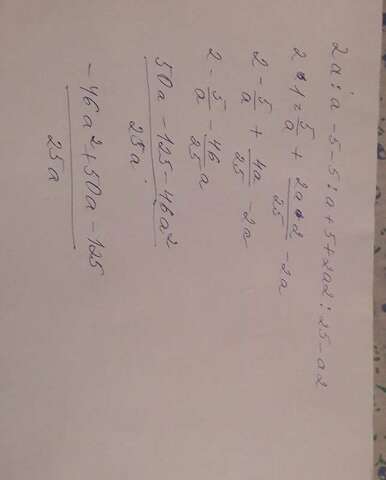 2a : a - 5 - 5 : a + 5 + 2a2 : 25 - a2
2 · 1 - 5/a + 2a·2/25 - 2a
2 - 5/a + 4a/25 - 2a
2 - 5/a - 46/25 a
50a - 125 - 46a²/25a
- 46a² + 50a - 125/25a